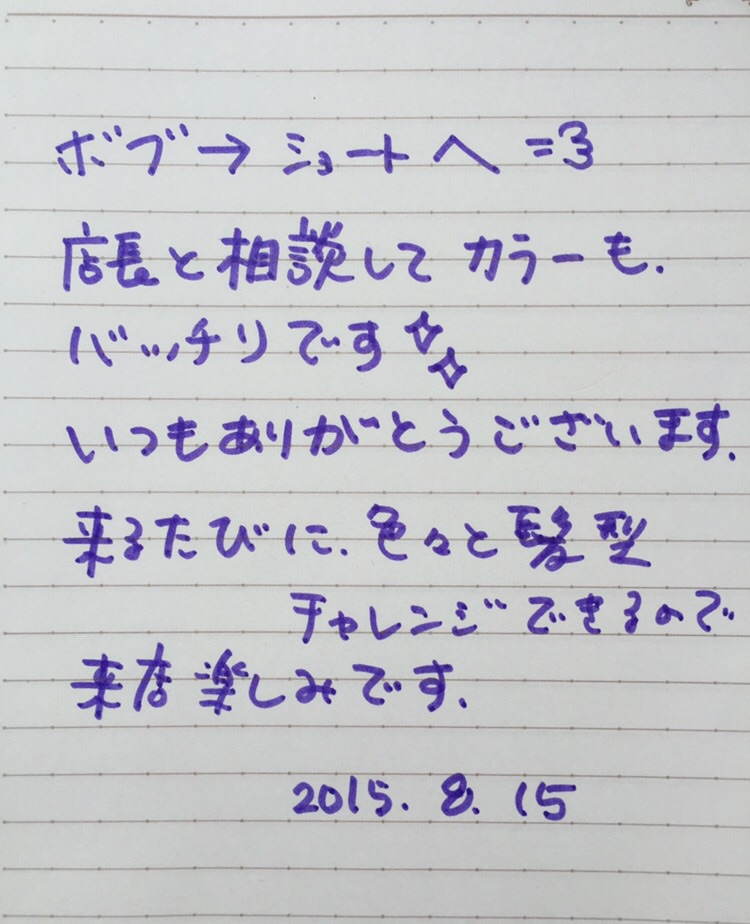 ボブ→ショートへ=3
店長と相談してカラーも.
バッチリです✧✧
いつもありがとうございます.
来るたびに、色々と髪型
チャレンジできるので
来店楽しみです.
2015. 8. 15